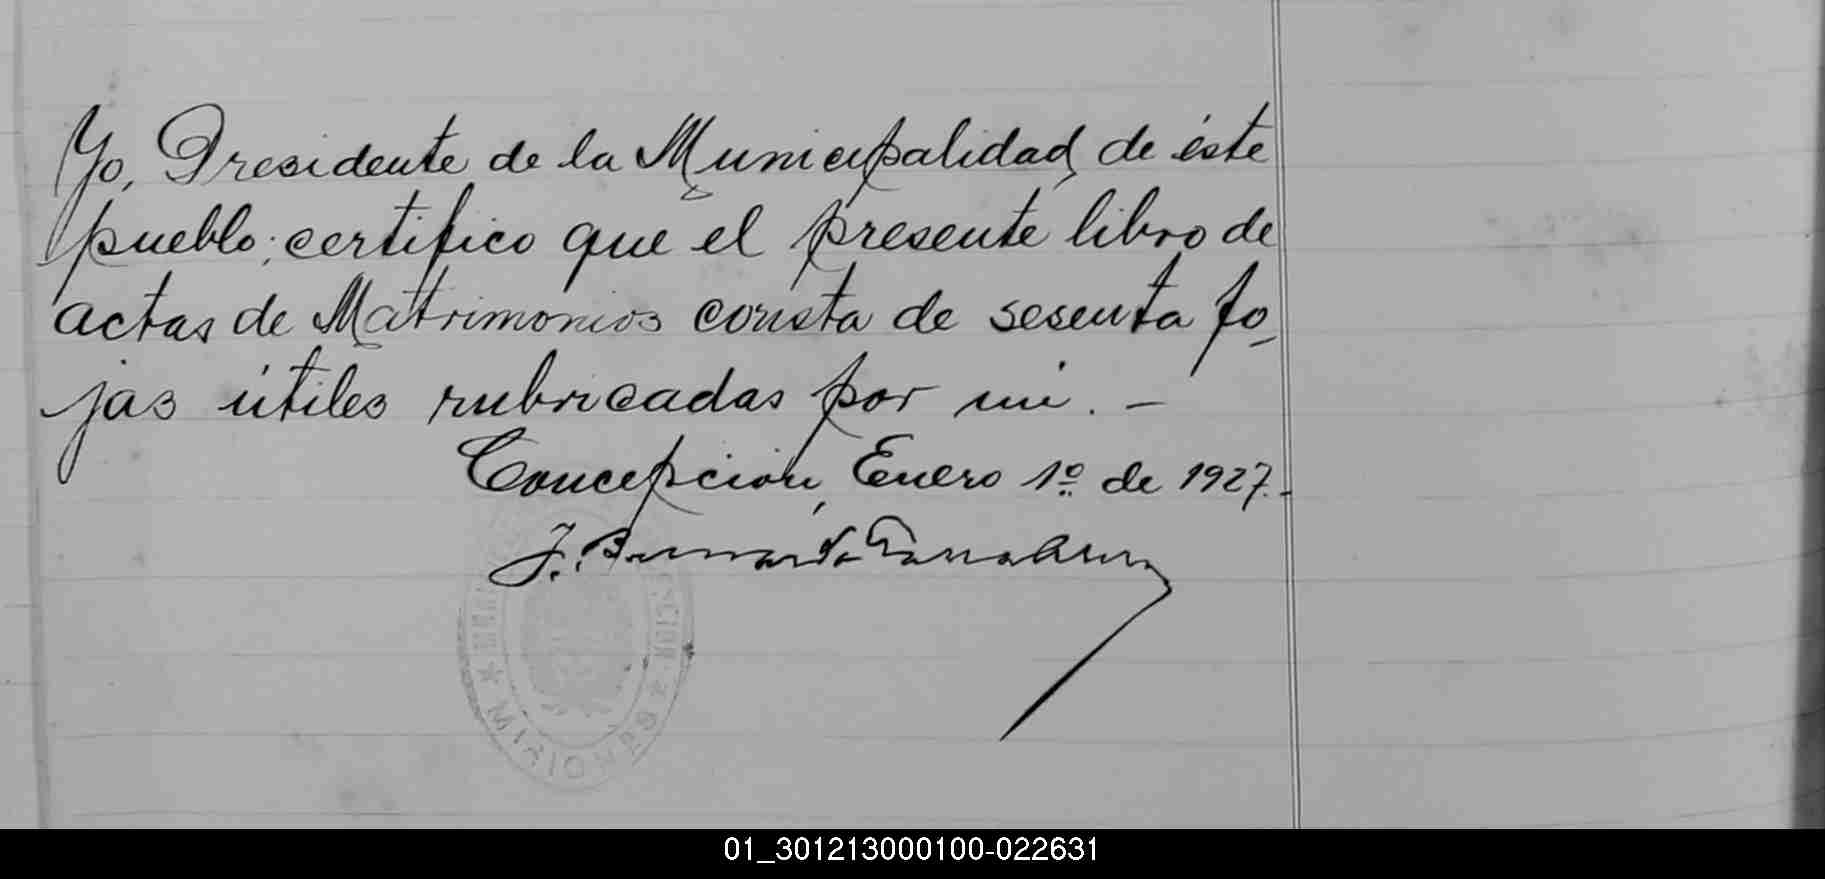 Yo, Presidente de la Municipalidad, de éste
pueblo; certifico que el presente libro de
actas de Matrimonios consta de sesenta fo-
jas útiles rubricadas por mi. —
Concepción, Enero 1º de 1927.-
J. Bernardo
★ MISIONES ★
01_301213000100-022631